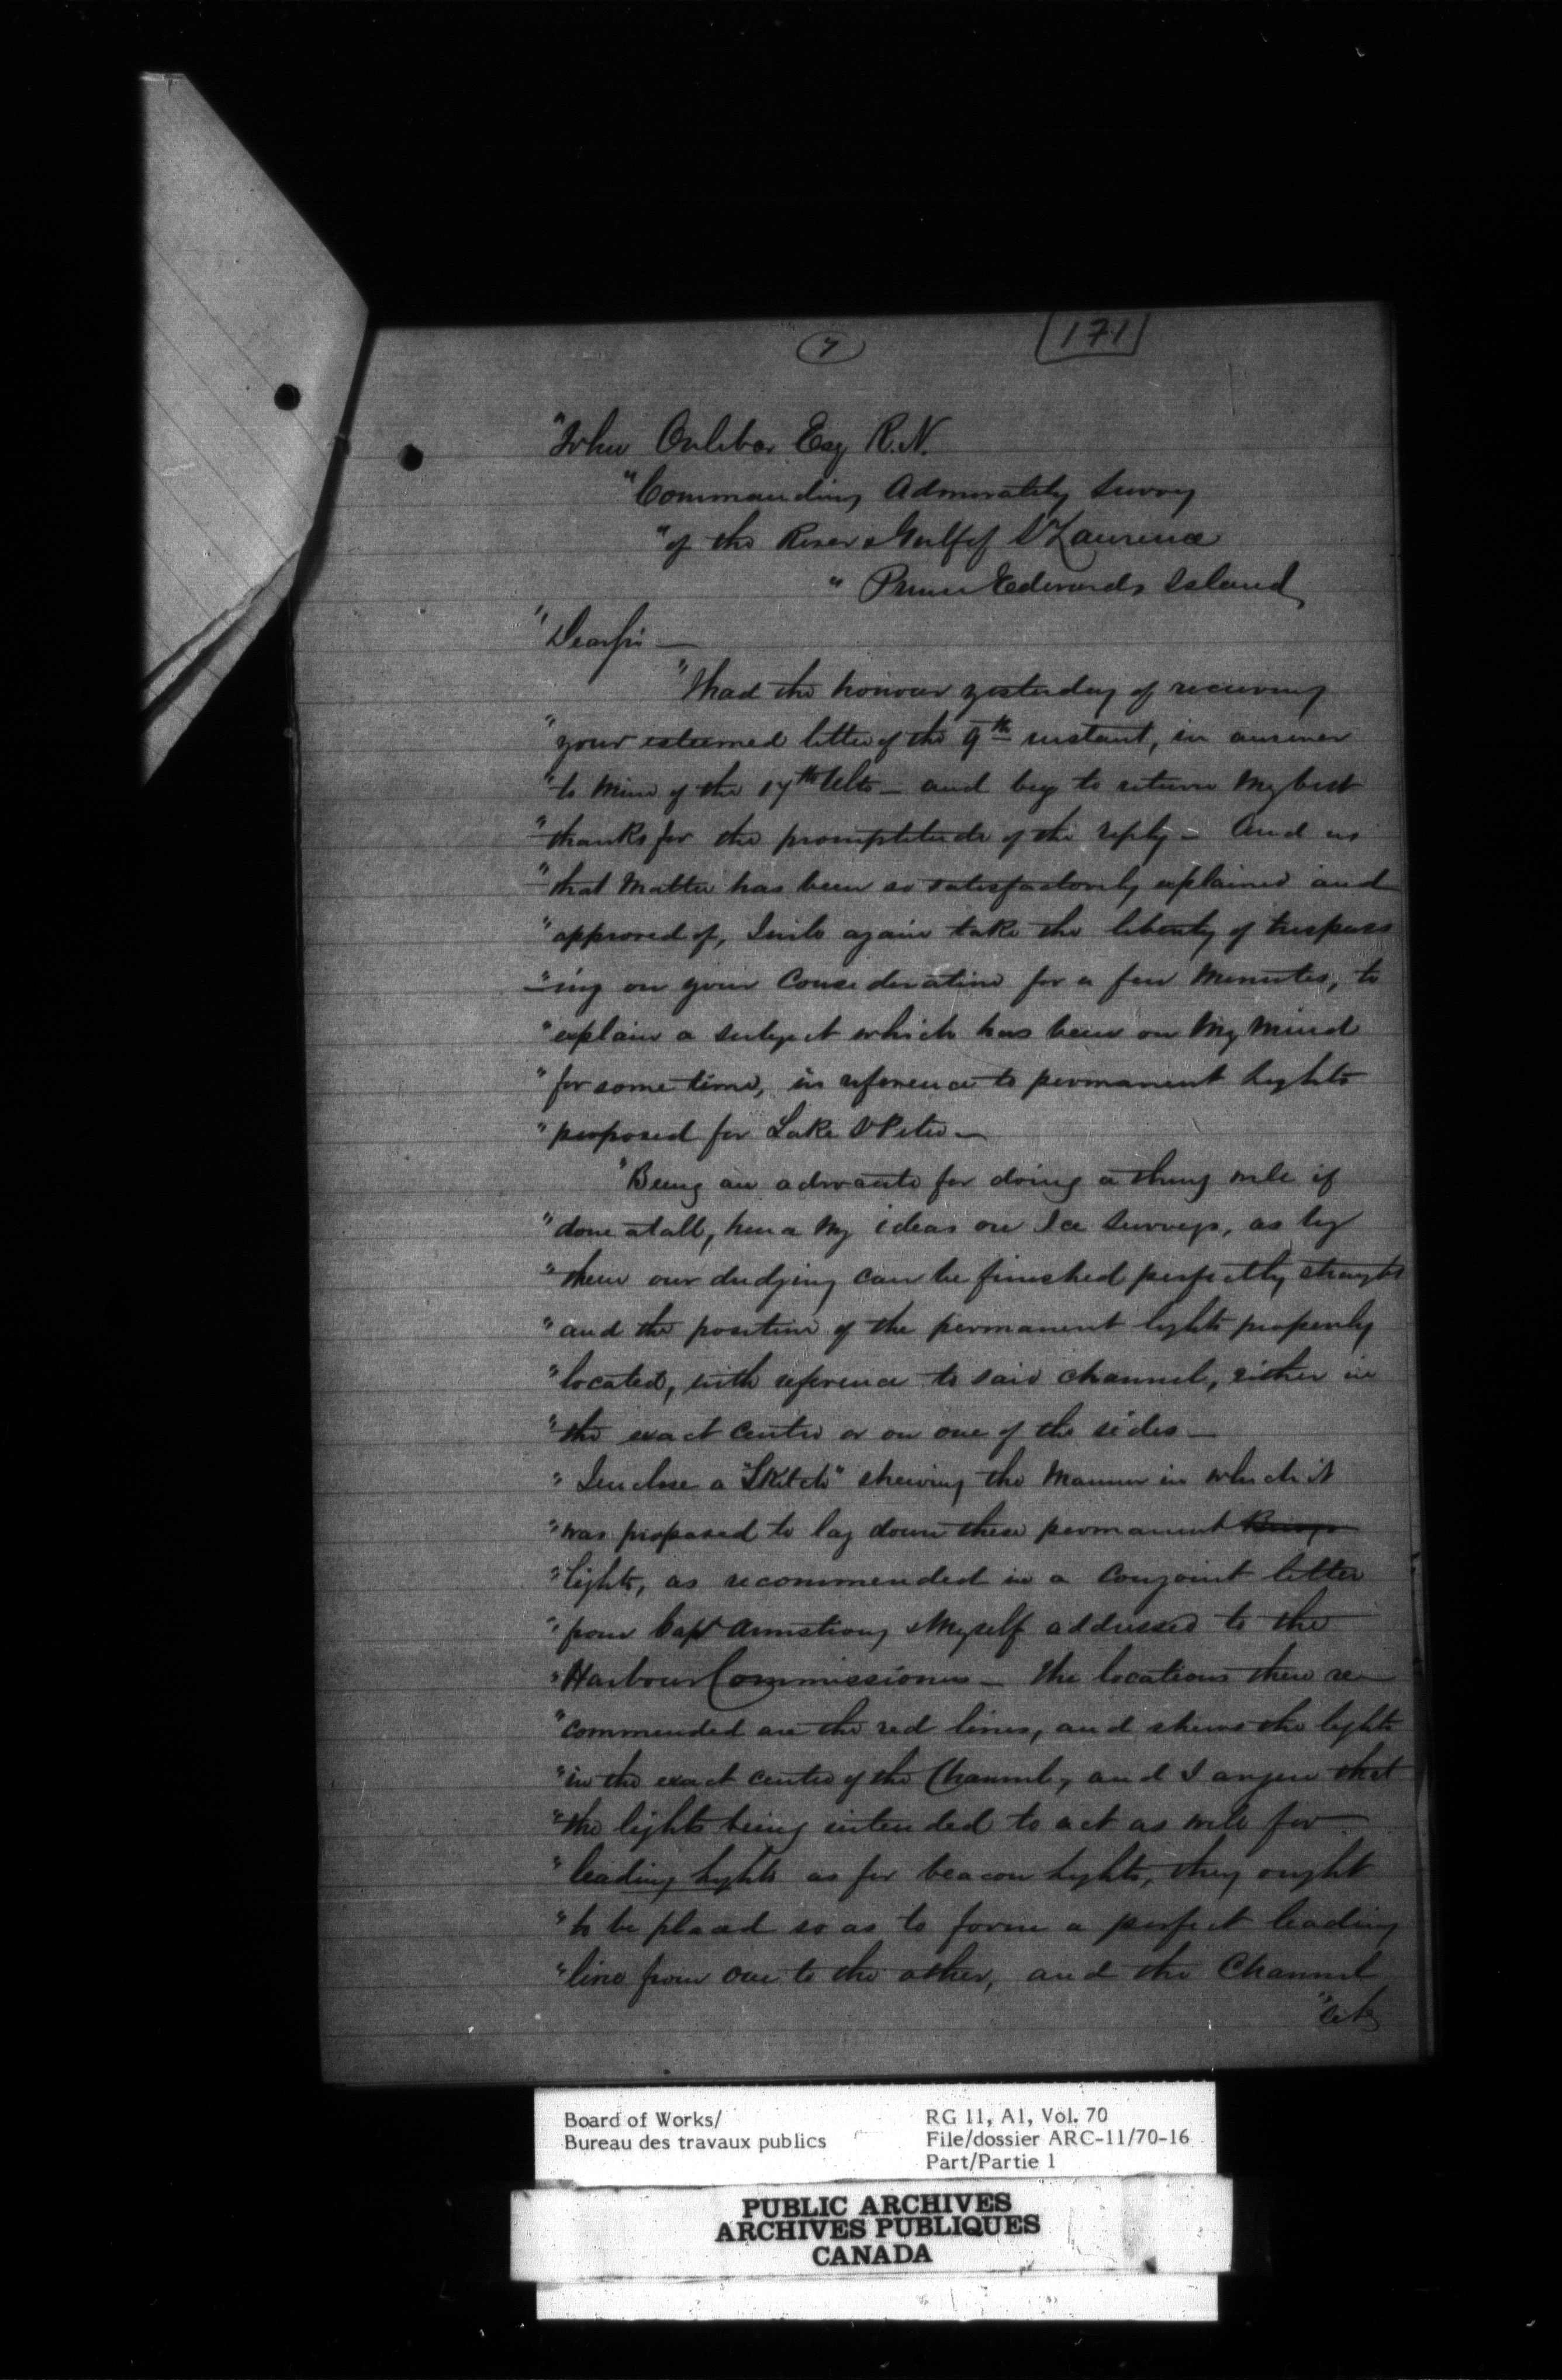 7
171
"John Orlebar Esq R.N.
"Commanding Admiralty Survey
"of the River & Gulf of St Lawrence
" Prince Edwards Island
"Dear Sir —
"I had the honour yesterday of receiving
"your esteemed letter of the 9th instant, in answer
"to mine of the 17th Ulto — and beg to return my best
"thanks for the promptitude of the reply — And as
"that matter has been so satisfactorily explained and
"approved of, I will again take the liberty of trespass
"-ing on your consideration for a few minutes, to
"explain a subject which has been on my mind
"for some time, in reference to permanent lights
"proposed for Lake St Peter —
"Being an advocate for doing a thing well if
"done at all, hence my ideas on Ice Surveys, as by
"them our dredging can be finished perfectly straight
"and the position of the permanent lights properly
"located, with reference to said channel, either in
"the exact centre or on one of the sides —
"I enclose a "Sketch" shewing the manner in which it
"was proposed to lay down these permanent
"lights, as recommended in a conjoint letter
"from Capt Armstrong & Myself addressed to the
"Harbour Commissioners — The locations there re-
"commended are the red lines, and shews the lights
"in the exact centre of the Channel, and I argue that
"the lights being intended to act as well for
"leading lights as for beacon lights, they ought
"to be placed so as to form a perfect leading
"line from one to the other, and the Channel
Board of Works/
Bureau des travaux publics
RG 11, A1, Vol. 70
File/dossier ARC-11/70-16
Part/Partie 1
PUBLIC ARCHIVES
ARCHIVES PUBLIQUES
CANADA